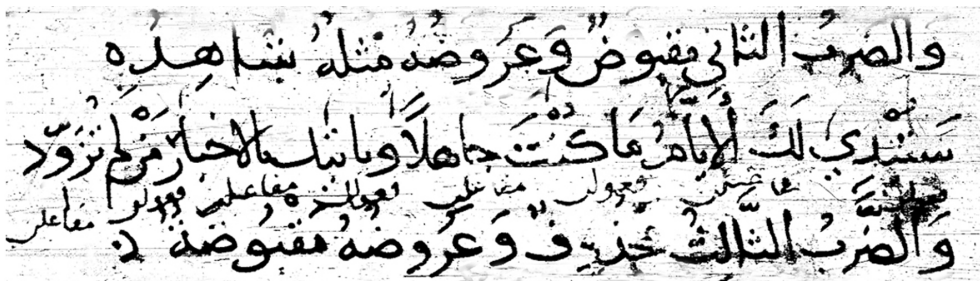 والضربُ الثاني مقبوضٌ وَعَروضُهُ مثلهُ شاهدُه
سَتُبْدِي لَكَ ألايَّامُ مَا كُنْتَ جاهلاً وياتيك بالاخبار مَنْ لم تُزَوّد
فعولن مفاعيلن فعولن مفاعلن فعولن مفاعيلن فعولن مفاعلن
وَالضَّرْبُ الثَّالثُ محذوفٌ وَعَرُوضُهُ مقبوضةٌ